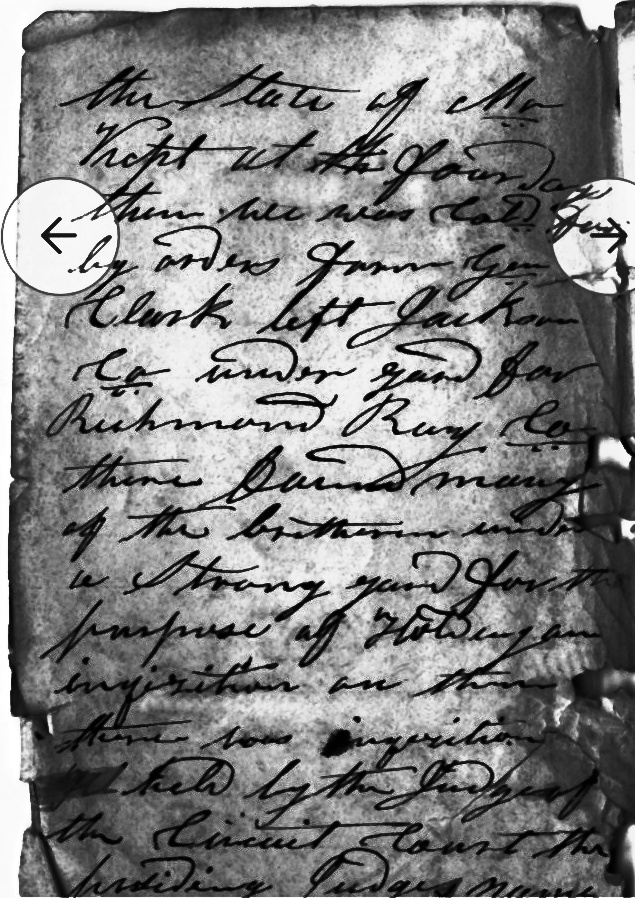 the State of Mo
Kept at the four day
then we was Cald for
by orders from Gen
Clark left Jackson
Co under gard for
Richmond Ray Co
there Found many
of the bretheren under
a Strong gard for th
purpose of Holding an
inqisition on them
there was inqisition
held by the Judge of
the Circuit Court the
presiding Judges name